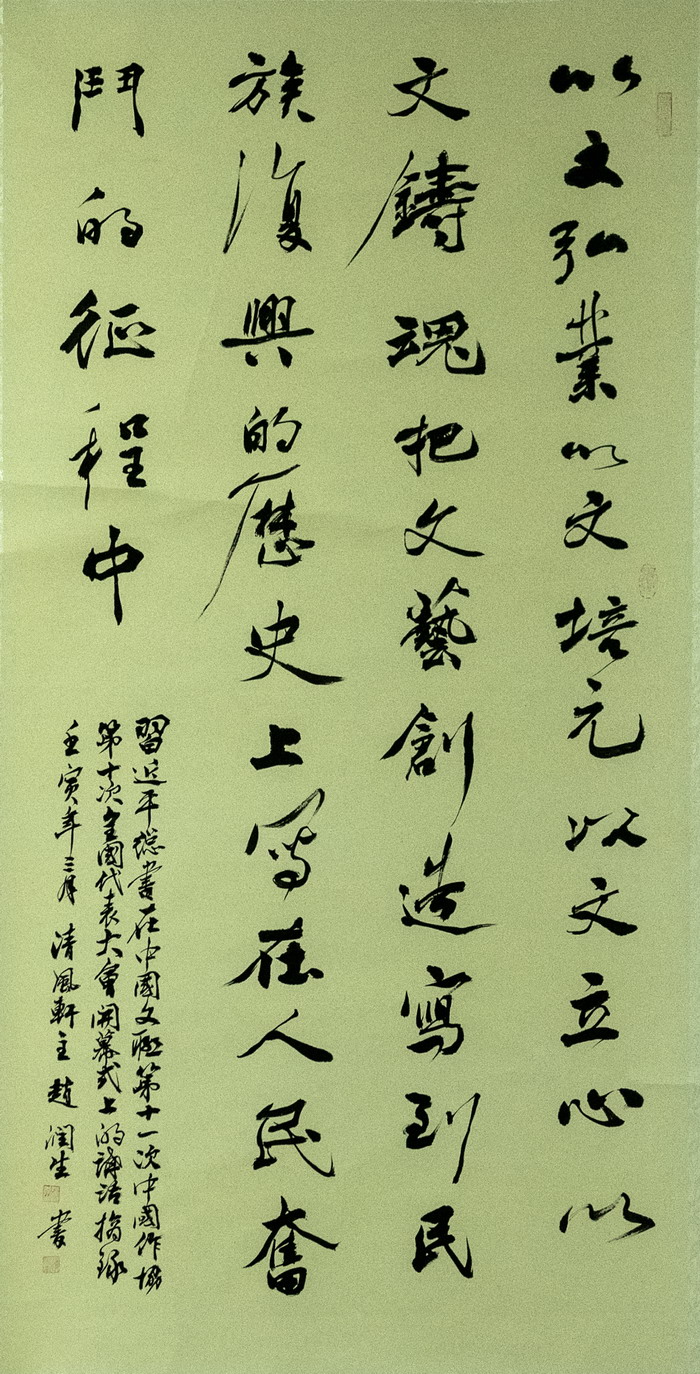 以文弘業以文培元以文立心以
文鑄魂把文藝創造寫到民
族復興的歷史上寫在人民奮
鬥的征程中
習近平總書在中國文聯第十一次中國作協
第十次全國代表大會開幕式上的講話摘錄
壬寅年三月清風軒主趙潤生書